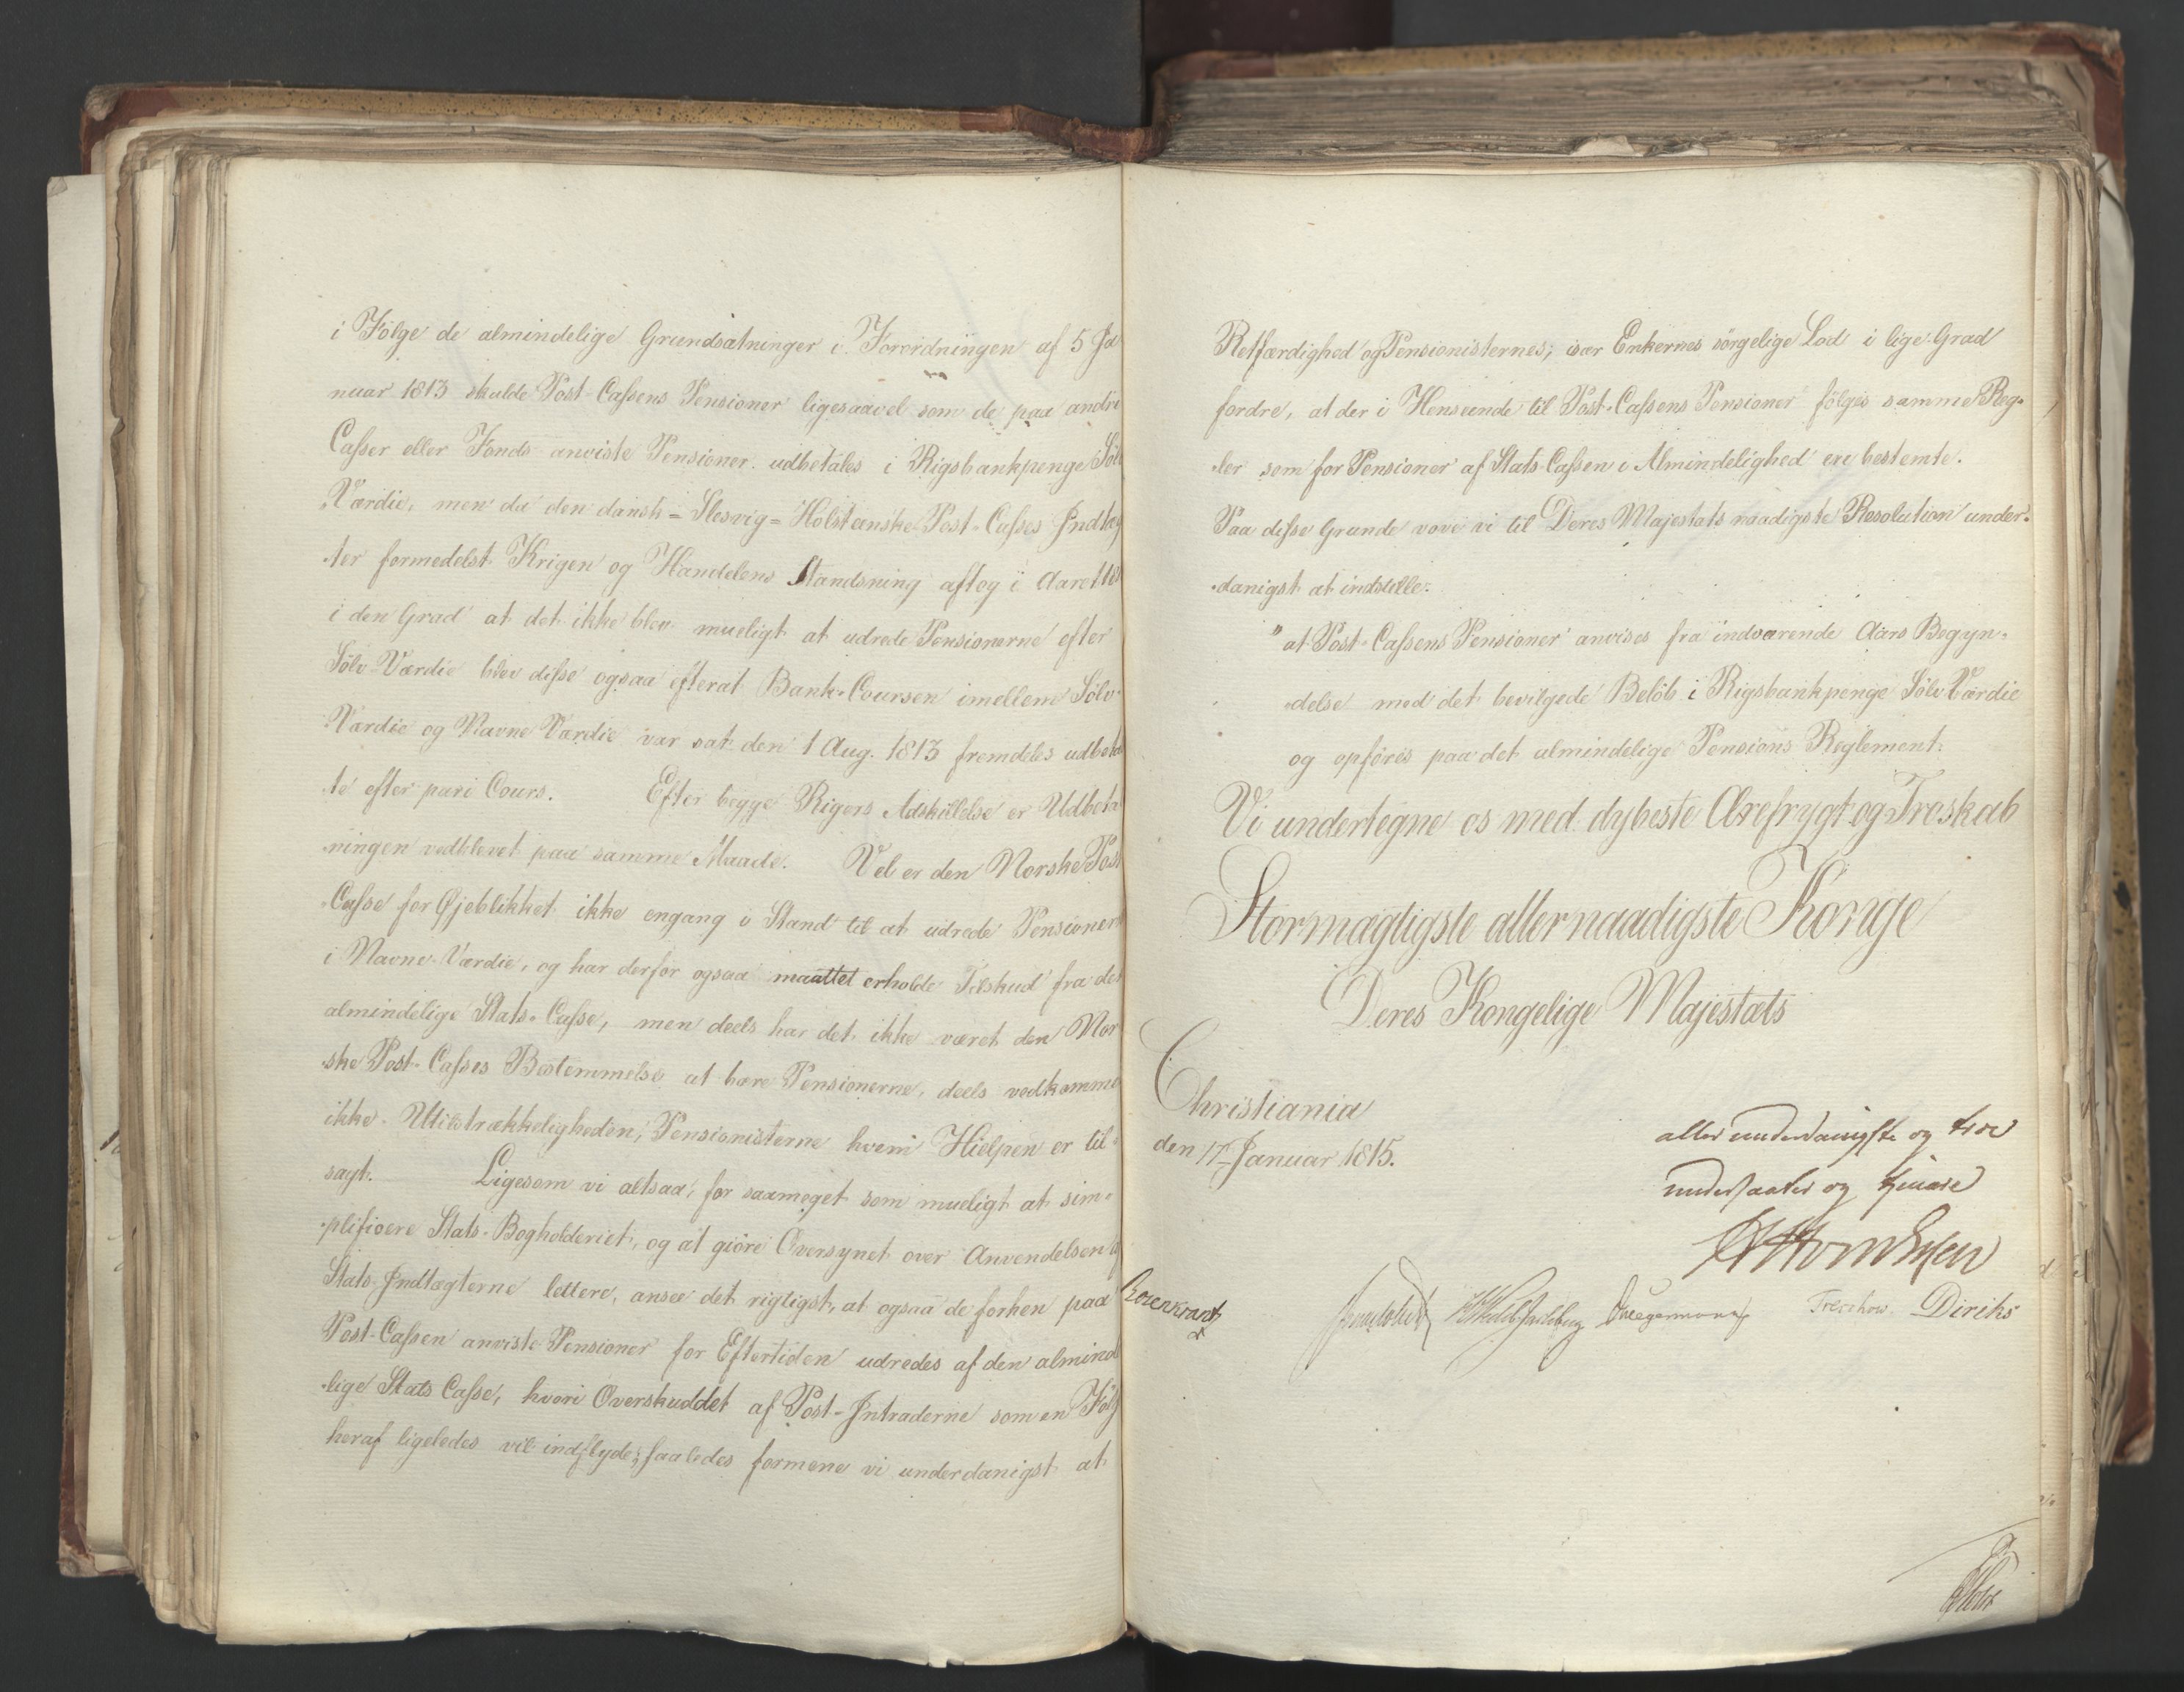 i Følge de almindelige Grundsætninger i Forordningen af 5 Ja
nuar 1813 skulde Post-Cassens Pensioner ligesaavel som de paa andre
Casser eller Fonds anviste Pensioner udbetales i Rigsbankpenge Søl
Værdie, men da den dansk-Slesvig-Holsteenske Post-Casses Indtæg
-ter formedelst Krigen og Handelens Standsning aftog i Aaret 18
i den Grad at det ikke blev mueligt at udrede Pensionerne efter
Sølv-Værdie blev disse ogsaa efterat Bank-Coursen imellem Sølv
Værdie og Navne Værdie var sat den 1 Aug. 1813 fremdeles udbetal
-te efter pari Cours. Efter begge Rigers Adskillelse er Udbeta
-ningen vedblevet paa samme Maade. Vel er den Norske Post
-Casse for Øjeblikket ikke engang i Stand til at udrede Pensionern
i Navne-Værdie, og har derfor ogsaa maattet erholde Tilskud fra den
almindelige Stats-Casse, men deels har det ikke været den Nor
ske Post-Casses Bestemmelse at bære Pensionerne, deels vedkomme
ikke Utilstrækkeligheden, Pensionisterne hvem Hielpen er til-
sagt. Ligesom vi altsaa, for saameget som mueligt at sim-
-plificere Stats-Bogholderiet, og at giøre Oversynet over Anvendelsen af
Stats-Indtægterne lettere, ansee det rigtigst, at ogsaa de forhen paa
Post-Cassen anviste Pensioner for Eftertiden udredes af den alminde
-lige Stats Casse, hvori Overskuddet af Post-Intraderne som en Følg
heraf ligeledes vil indflyde; saaledes formene vi underdanigst at
Retfærdighed og Pensionisternes, især Enkernes sørgelige Lod i lige Grad
fordre, at der i Henseende til Post-Cassens Pensioner følges samme Reg-
-ler som for Pensioner af Stats-Cassen i Almindelighed ere bestemte.
Paa disse Grunde vove vi til Deres Majestæts naadigste Resolution under-
-danigst at indstille:
"at Post-Cassens Pensioner anvises fra indværende Aars Begyn-
-delse med det bevilgede Beløb i Rigsbankpenge Sølv Værdie
og opføres paa det almindelige Pensions Reglement.
Vi undertegne os med dybeste Ærefrygt og Troskab
Stormægtigste allernaadigste Konge
Deres Kongelige Majestæts
Christiania
den 17 Januar 1815.
allerunderdanigste og troe
undersaatter og tjenere
Rosenkrantz
Treschow Diriks